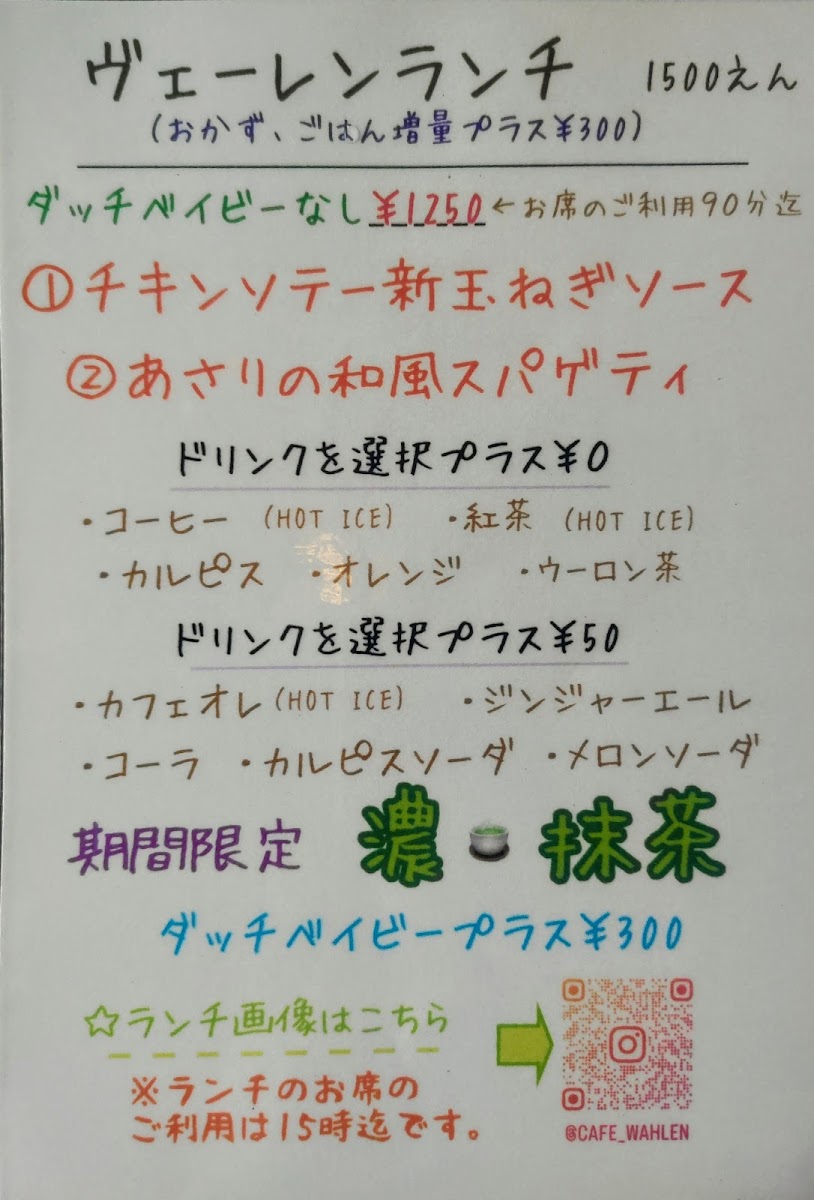 ヴェーレンランチ 1500えん
(おかず、ごはん増量プラス¥300)
ダッチベイビーなし¥1250←お席のご利用90分迄
①チキンソテー新玉ねぎソース
②あさりの和風スパゲティ
ドリンクを選択プラス¥0
・コーヒー (HOT ICE) ・紅茶 (HOT ICE)
・カルピス ・オレンジ ・ウーロン茶
ドリンクを選択プラス¥50
・カフェオレ(HOT ICE) ・ジンジャーエール
・コーラ ・カルピスソーダ ・メロンソーダ
期間限定 濃🍵抹茶
ダッチベイビープラス¥300
☆ランチ画像はこちら
※ランチのお席の
ご利用は15時迄です。
@CAFE_WAHLEN